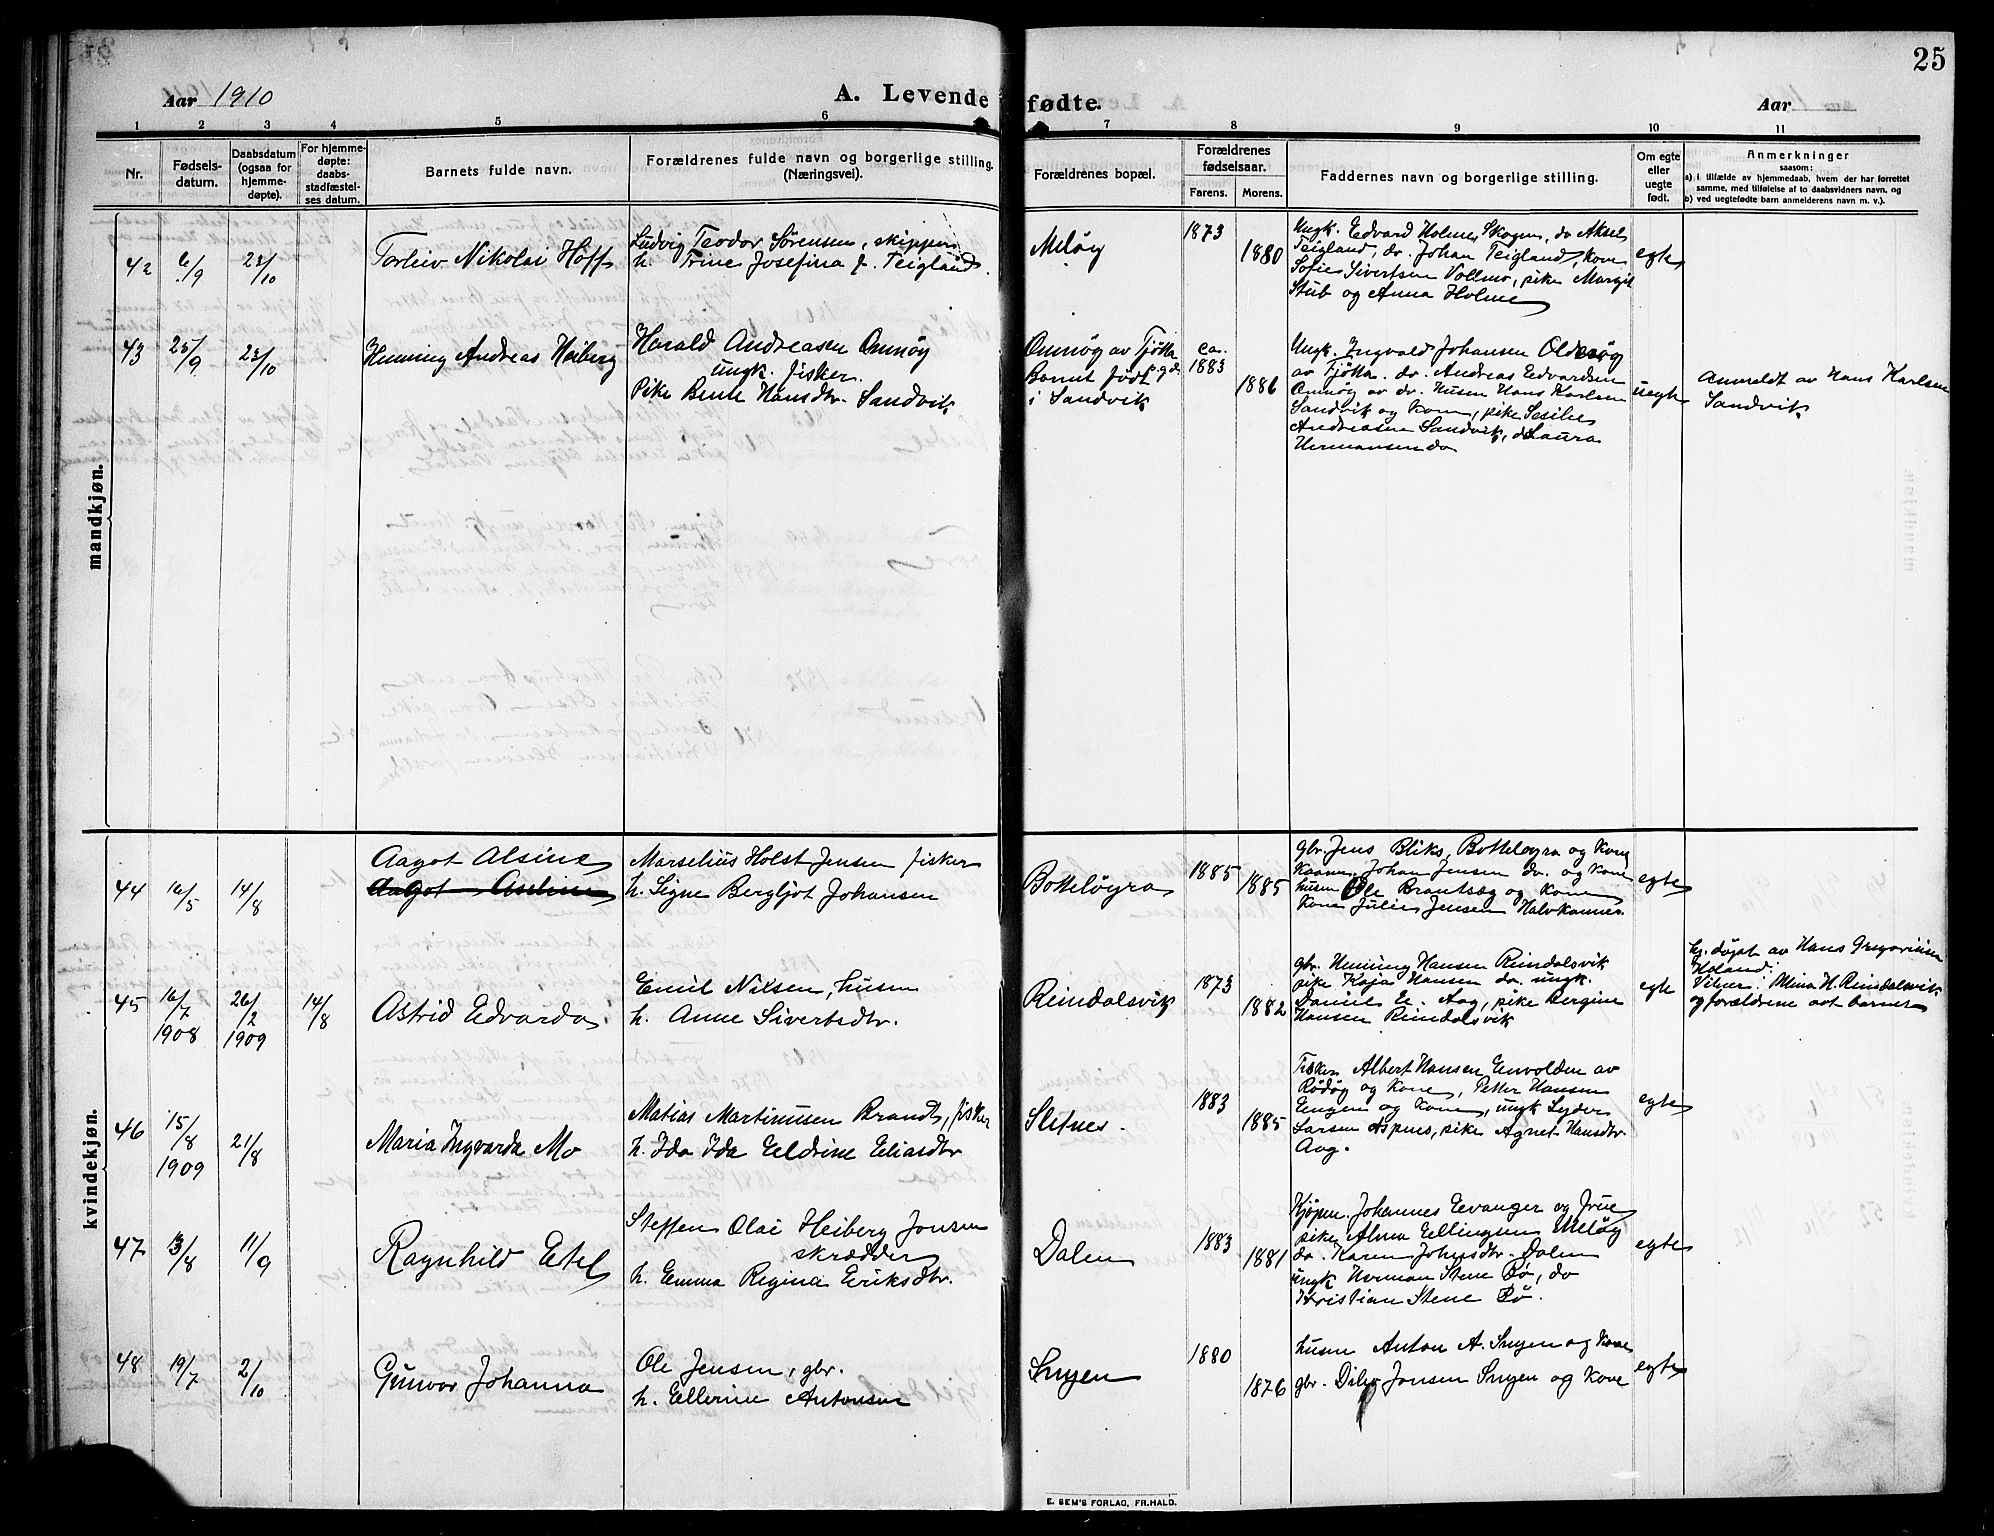 25
Aar 1910
A. Levende fødte.
Aar
1 2 3 4 5 6 7 8 9 10 11
Nr.
Fødsels-
datum.
Daabsdatum
(ogsaa for
hjemme-
døpte).
For hjemme-
døpte:
daabs-
stadfæstel-
ses datum.
Barnets fulde navn.
Forældrenes fulde navn og borgerlige stilling.
(Næringsvei).
Forældrenes bopæl.
Forældrenes
fødselsaar.
Farens.
Morens.
Faddernes navn og borgerlige stilling.
Om egte
eller
uegte
født.
Anmerkninger
saasom:
a) i tilfælde av hjemmedaab, hvem der har forrettet
samme, med tilføielse af to daabsvidners navn, og
b) ved uegtefødte barn anmelderens navn m. v.).
mandkjøn.
42
6/9
23/10
Torleiv Nikolai Hoff
Ludvig Teodor Sørensen, skipper
h. Trine Josefina f. Teigland.
Meløy
1873
1880
Ungk. Edvard Holmes Skogen, do Aksel
Teigland, do. Johan Teigland, kone
Sofie Sivertsen Vollmo, pike Margit
Stub og Anna Holme
egte
43
25/9
23/10
Henning Andreas Heiberg
Harald Andreasen Omnøy
ungk. fisker.
Pike Bente Hansdtr. Sandvik
Omnøy av Tjøtta
pgd.
Barnet født
i Sandvik
ca.
1883
1886
Ungk. Ingvald Johansen Oldersøy
av Tjøtta. do. Andreas Edvardsen
Omnøy av do. husm Hans Karlsen
Sandvik og Kone, pike Sesilie
Andreasen Sandvik, do Laura
Hermansen do
uegte
Anmeldt av Hans Karlsen
Sandvik
kvindekjøn.
44
16/5
14/8
Aagot Alsine
Aagot Aseline
Marselius Holst Jensen fisker
h. Signe Bergljot Johansen
Botteløyra
1885
1885
gbr Jens Bliks, Botteløyra og Kone
Kaanes. Johan Jensen do. og Kone
husm Ole Brantsæg og Kone
Kone Julie Jensen Halvkannes.
egte
45
16/7
1908
26/2
1909
14/8
Astrid Edvarda.
Emil Nilsen, husm
h. Anne Sivertsdtr.
Reindalsvik
1873
1882
gbr. Henning Hansen Reindalsvik
pike Kaja Hansen do. ungk.
Daniel E. Aag, pike Bergine
Hansen Reindalsvik
egte
hj. døpt av Hans Gregoriusen
Holand.
Vitner: Mina H. Reindalsvik
og forældrene aat barnet
46
15/8
1909
21/8
Maria Ingvarda Mo
Matias Martinusen Brandt, fisker
h. Ida Ida Eldrine Eliasdtr
Sletnes.
1883
1885
Fisker Albert Hansen Envolden av
Rødøy og Kone, Petter Hansen
Engen og Kone, ungk Lyder
Larsen Aspnes, pike Agnet Hansdtr.
Aag.
egte
47
13/8
11/9
Ragnhild Etel
Steffen Olai Heiberg Jonsen
skrædder
h. Emma Regina Eriksdtr.
Dalen
1883
1881
Kjøpm. Johannes Evanger og frue
pike Alma Ellingsen Meløy
do. Karen Johnsdtr. Dalen
ungk Herman Stene Bø, do
Kristian Stene Bø.
egte
48
19/7
2/10
Gunvor Johanna
Ole Jensen, gbr.
h. Ellerine Antonsen
Engen
1880
1876
husm Anton A. Engen og Kone
gbr. Jonsen Engen og Kone
egte
E. SEM'S FORLAG, FR.HALD.